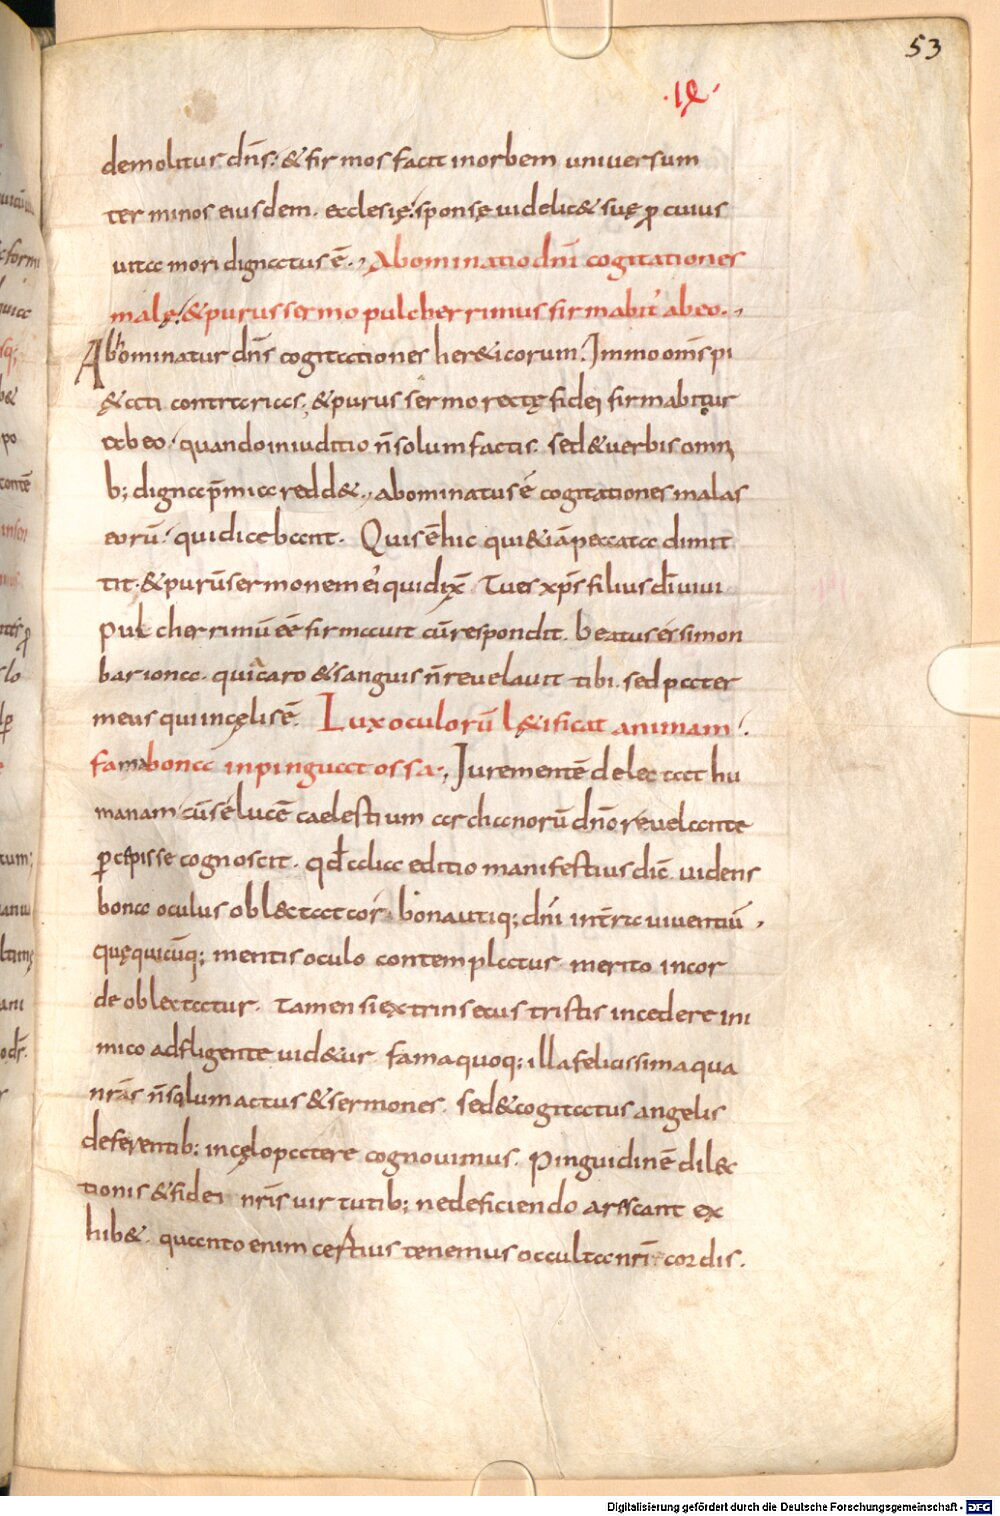 53
.ię.
demolitur dn̄s. & firmos facit inorbem universum
terminos eiusdem. ecclesię sponsę videlic& suę ꝓ cuius
vita mori dignatus ē. Abominatio dn̄i cogitationes
malę. & purus sermo pulcherrimus firmabit̉ abeo.
Abominatur dn̄s cogitationes her&icorum. Immo om̄s pi
&ati contrarias. & purus sermo rectę fidei firmabitur
abeo. quando iniuditio n̄ solum factis. sed & verbis omni
b; digna p̄mia redd&. abominatus ē cogitationes malas
eorū. qui dicebant. Quis ē hic qui &iā peccata dimit
tit. & purū sermonem ei qui dix̄. Tu es xp̄s filius dī vivi
Pulcherrimū eē firmavit cū respondit. beatus es simon
bariona. quia caro & sanguis n̄ revelavit tibi. sed pater
meus qui incęlis ē. Lux oculorū l&ificat animam.
fama bona inpinguat ossa. Iure mentē delectat hu
manam cū sē lucē caelestium archanorū dn̄o revelante
ꝑcepisse cognoscit. qđ alia editio manifestius dic̄. videns
bona oculus oblectat cor. bona utiq; dn̄i int̄rra viventiū.
quę quicūq; mentis oculo contemplatur merito incor
de oblectatur. Tamen si extrinsecus tristis incedere ini
mico adfligente vid&ur. fama quoq; illa felicissima qua
nr̄as n̄ solum actus & sermones. sed & cogitatus angelis
deferentib; incęlo patere cognovimus. Pinguidinē dilec
tionis & fidei nr̄is virtutib; ne deficiendo arescant ex
hib&. quanto enim certius tenemus occulta nr̄i cordis.
Digitalisierung gefördert durch die Deutsche Forschungsgemeinschaft - DFG